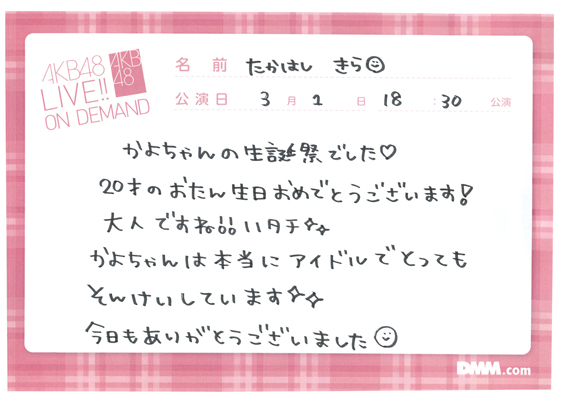 AKB48
LIVE!!
ON DEMAND
AKB
48
名前 たかはし きら☺
公演日 3月2日 18:30公演
かよちゃんの生誕祭でした♡
20才のおたん生日おめでとうございます!
大人ですね!!
かよちゃんは本当にアイドルでとっても
そんけいしています✧✧
今日もありがとうございました☺
DMM.com